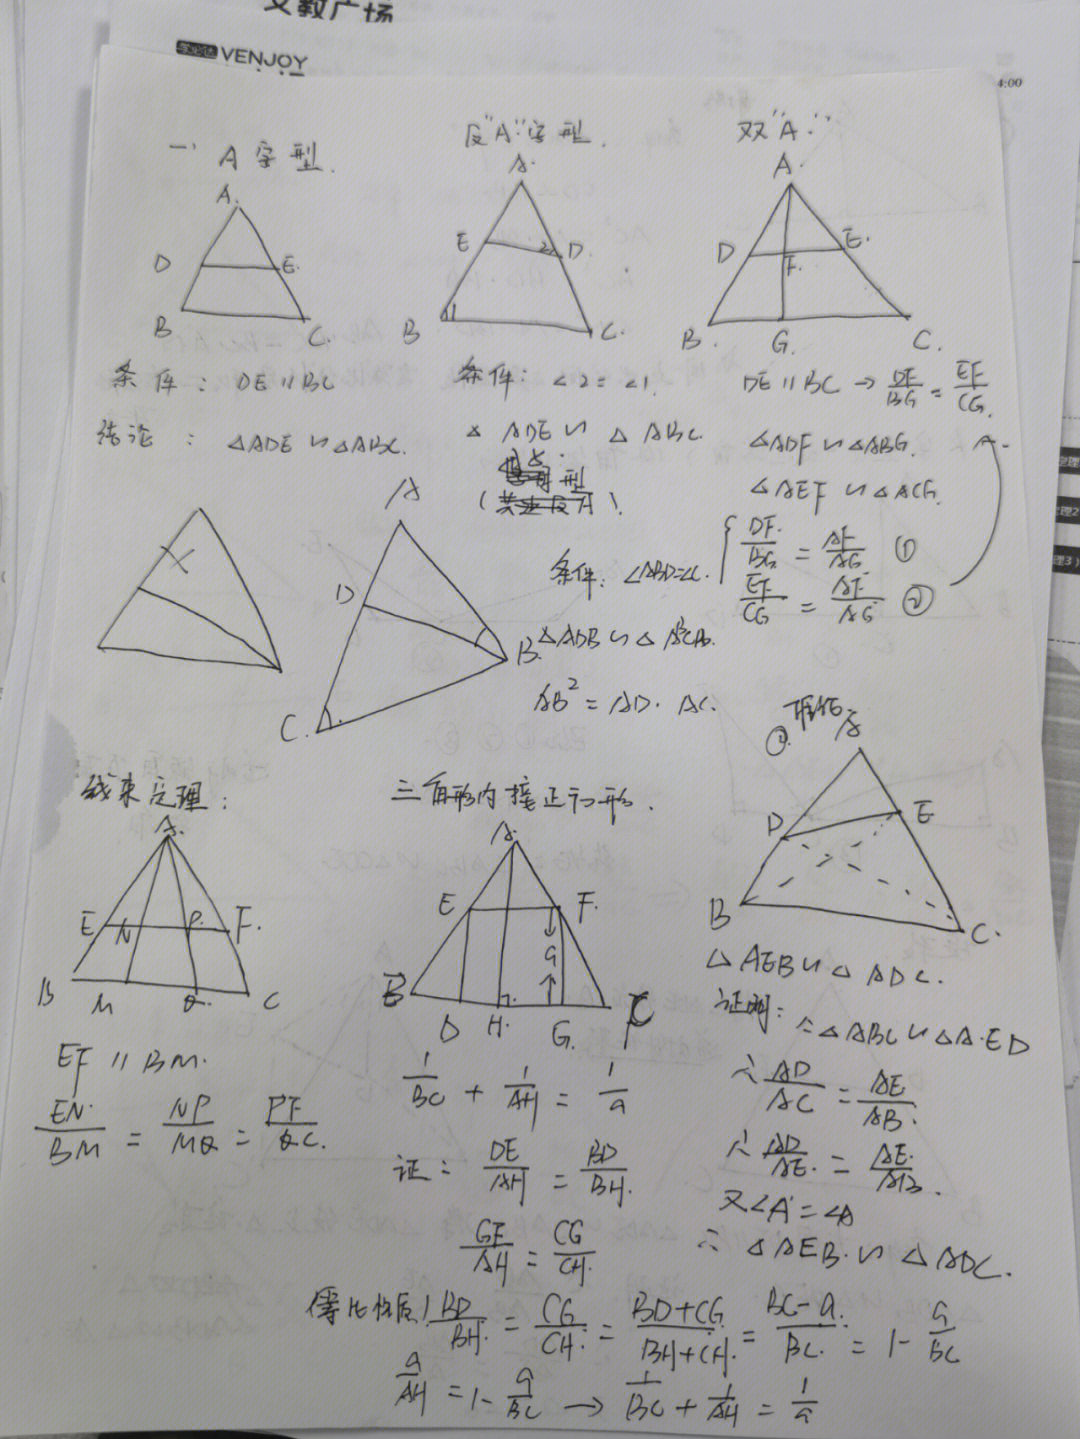 文教广场
学必达 VENJOY
4:00
一、A字型.
反"A"字型.
双"A."
A.
D
E.
B
C.
A.
E
2
D.
1
B
C.
A.
D
E.
F.
B.
G.
C.
条件: DE∥BC
结论: △ADE∽△ABC.
条件: ∠2=∠1.
△ADE∽△ABC.
DE∥BC→DF/BG=EF/CG.
△ADF∽△ABG.
△AEF∽△ACG.
DF/BG=AF/AG ①
EF/CG=AF/AG ②
定理2
理3)
A
D
B.
C.
条件: ∠ABD=∠C.
△ADB∽△ABC.
AB²=AD·AC.
线束定理:
A.
E
N
P.
F.
B
M
Q.
C
EF∥BM.
EN/BM=NP/MQ=PF/QC.
三角形内接正方形.
A.
E
F.
a
B
D
H.
G.
C
1/BC+1/AH=1/a
证: DE/AH=BD/BH.
GF/AH=CG/CH.
等比性质! BD/BH=CG/CH=BD+CG/BH+CH=BC-a/BC=1-a/BC
a/AH=1-a/BC→1/BC+1/AH=1/a
A
D
E
B
C.
△AEB∽△ADC.
证明: ∵△ABC∽△AED
∴AD/AC=AE/AB.
∴AD/AE.=AE./AB.
又∠A=∠A
∴△AEB.∽△ADC.